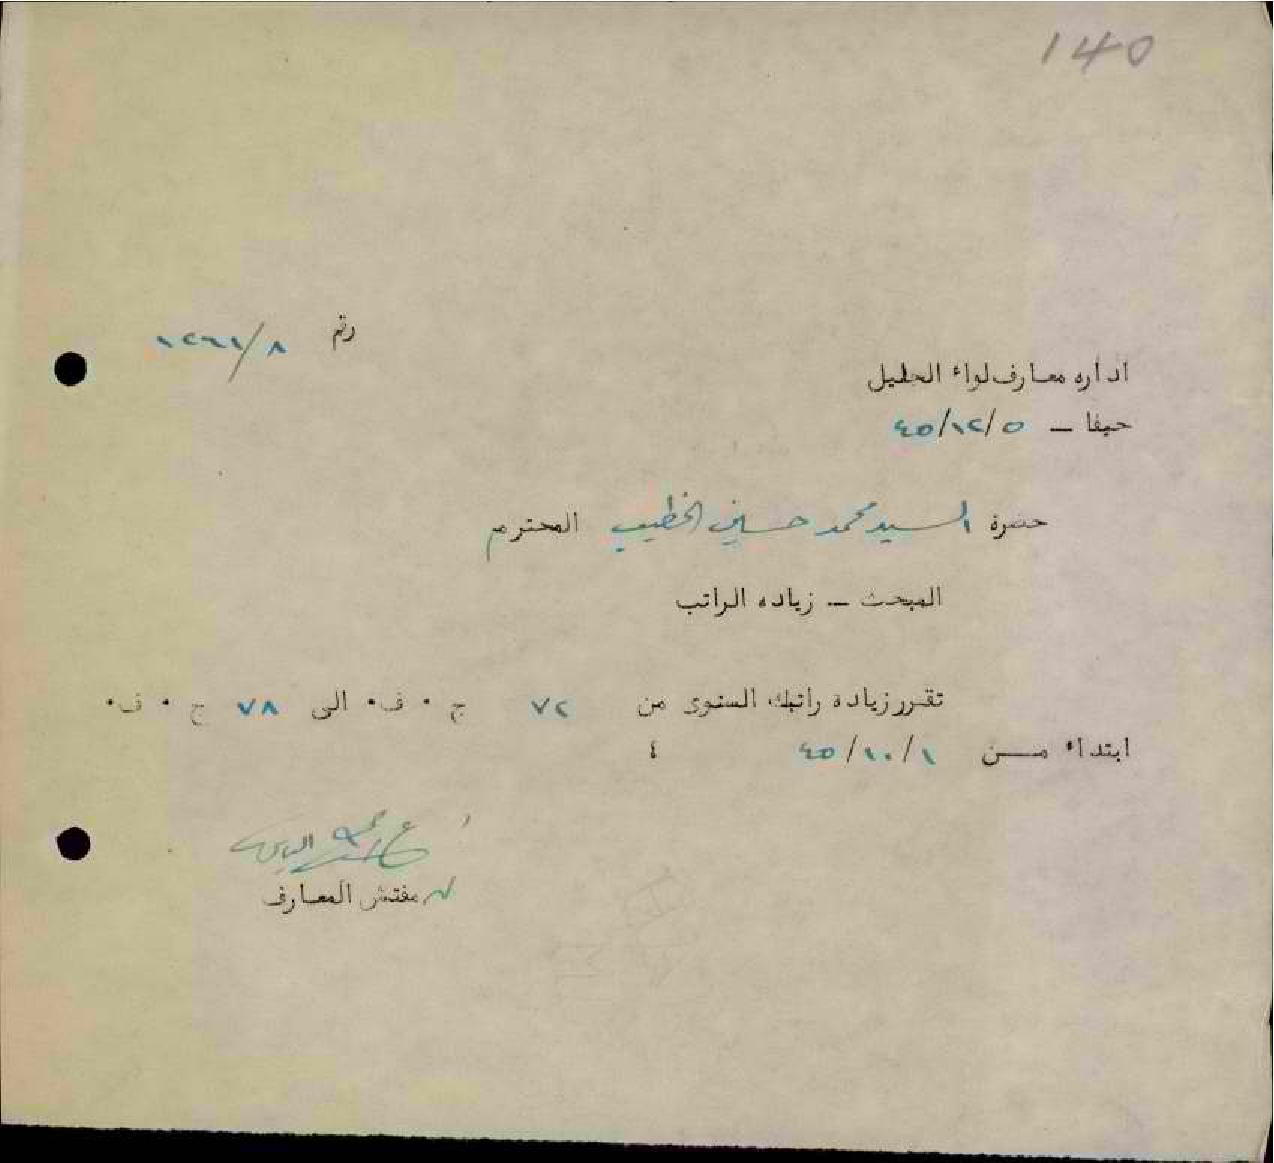 140
رقم ٨/١٢٦١
ادارة معارف لواء الجليل
حيفا – ٤٥/١٢/٥
حضرة السيد محمد حسين الخطيب المحترم
المبحث – زياده الراتب
تقرر زيادة راتبك السنوى من ٧٢ ج ٠ ف٠ الى ٧٨ ج ٠ ف٠
ابتداء مــن ٤٥/١٠/١ ٤
مفتش المعارف